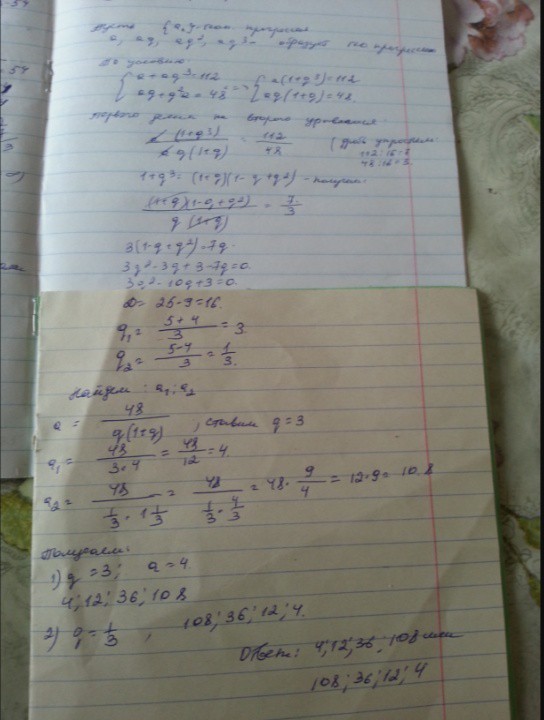 Пусть {a, q - геом. прогрессия
a, aq, aq², aq³ - образует геом прогрессию
По условию:
{a + aq³ = 112 => {a(1+q³) = 112
{aq + q²a = 48 {aq(1+q) = 48.
первого делим на второго уравнения:
a(1+q³) / aq(1+q) = 112/48 (Дробь упростим:
112:16=7
48:16=3.
1+q³ = (1+q)(1-q+q²) - получаем:
(1+q)(1-q+q²) / q(1+q) = 7/3
3(1-q+q²)=7q.
3q²-3q+3-7q=0.
3q²-10q+3=0.
D= 25-9=16.
q₁ = (5+4)/3 = 3.
q₂ = (5-4)/3 = 1/3.
Найдем: a₁; a₂
a = 48 / q(1+q), ставим q=3
a₁ = 48/3·4 = 48/12 = 4.
a₂ = 48 / (1/3 · 1 1/3) = 48 / (1/3 · 4/3) = 48· 9/4 = 12·9= 108
Получаем:
1) q = 3; a = 4
4; 12; 36; 108
2) q = 1/3, 108; 36; 12; 4.
Ответ: 4; 12; 36; 108 или
108; 36; 12; 4